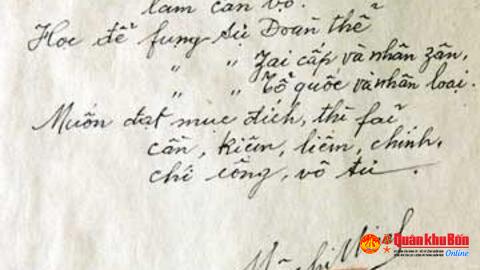 làm cán bộ.
Học để fụng sự Đoàn thể
" " Zai cấp và nhân zân,
" " Tổ quốc và nhân loại.
Muốn đạt mục đích, thì fải
cần, kiệm, liêm, chính,
chí công, vô tư.
Hồ chí Minh
Quân khu Bốn
Online